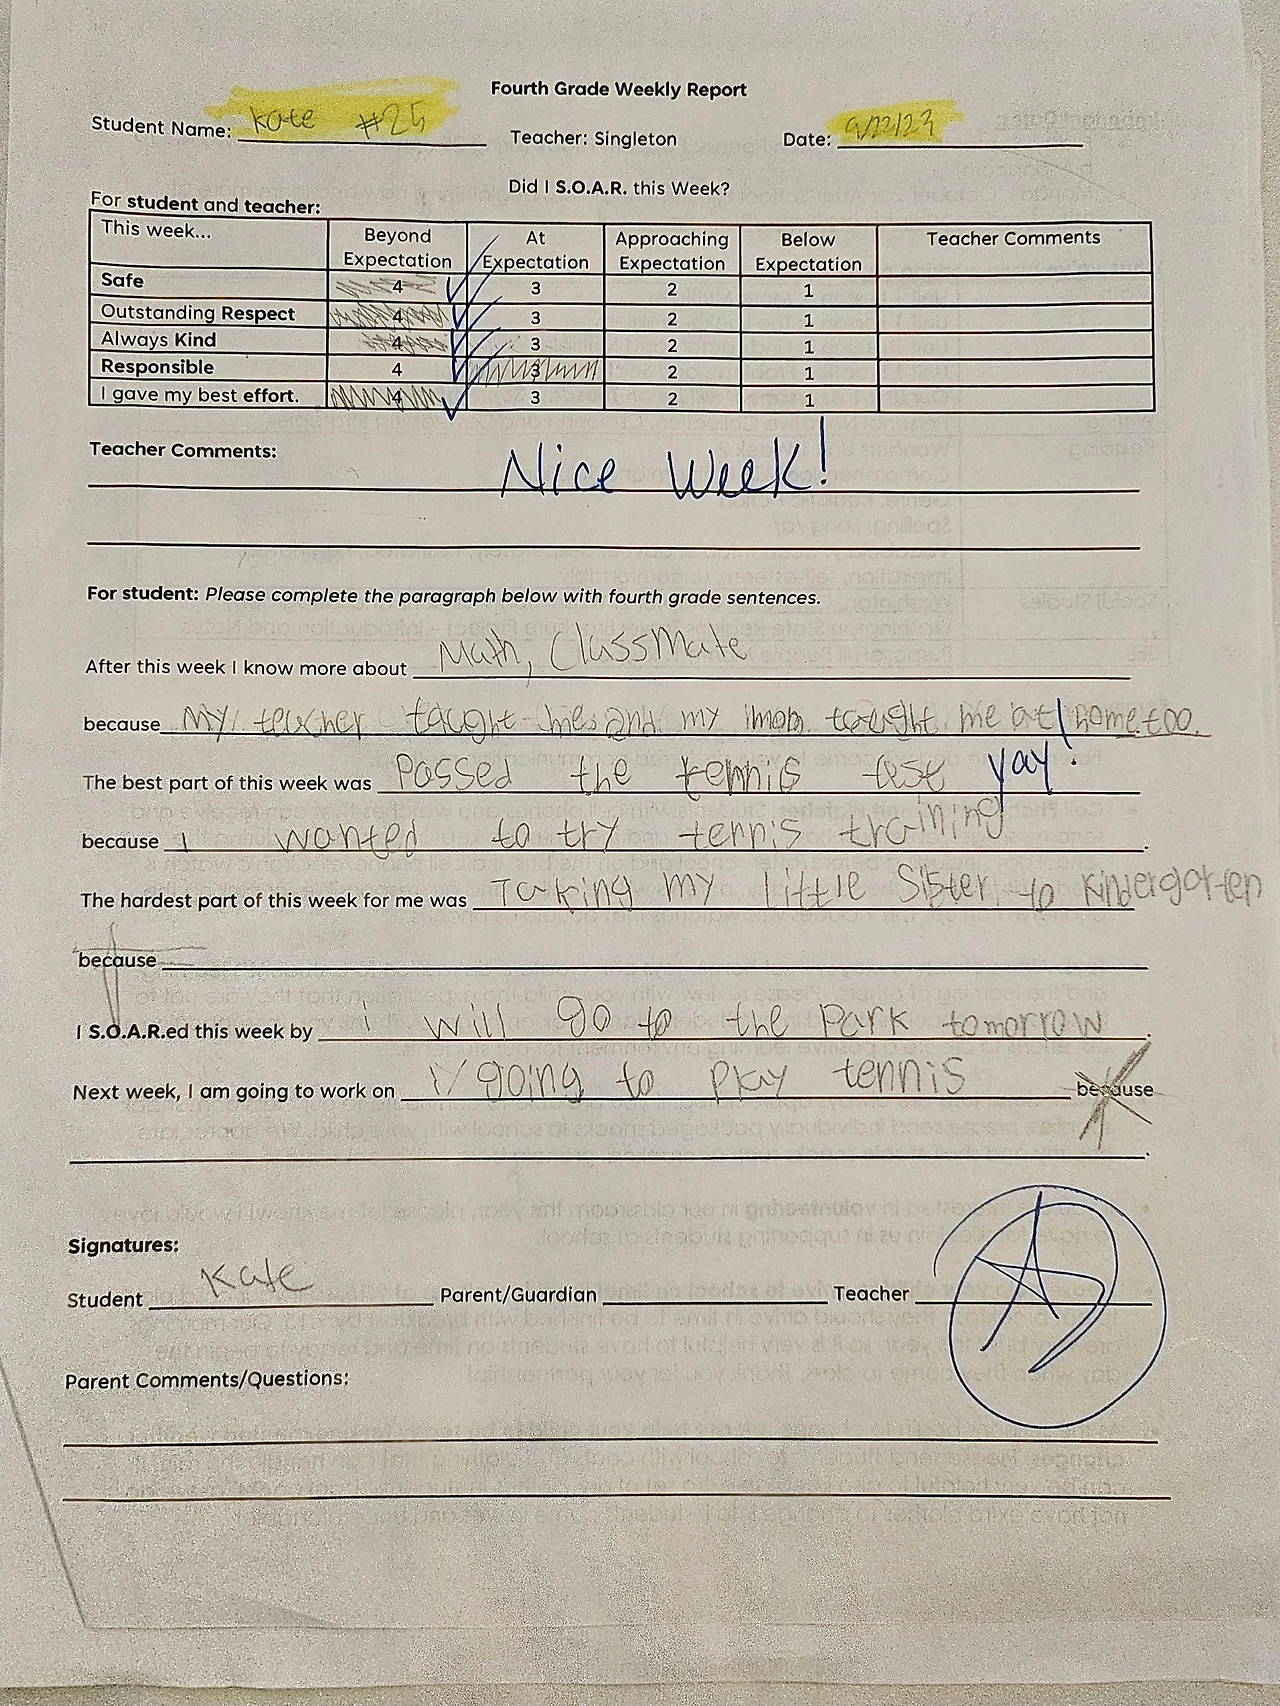 Fourth Grade Weekly Report
Student Name: Kate #25 Teacher: Singleton Date: 9/22/23
Did I S.O.A.R. this Week?
For student and teacher:
This week... Beyond Expectation At Expectation Approaching Expectation Below Expectation Teacher Comments
Safe 4 3 2 1
Outstanding Respect 4 3 2 1
Always Kind 4 3 2 1
Responsible 4 3 2 1
I gave my best effort. 4 3 2 1
Teacher Comments: Nice Week!
For student: Please complete the paragraph below with fourth grade sentences.
After this week I know more about Math, ClassMate
because My teacher taught me and my mom tought me at home too.
The best part of this week was Passed the tennis tese yay!
because I wanted to try tennis training.
The hardest part of this week for me was Taking my little Sister to Kindergarten
because
I S.O.A.R.ed this week by i will go to the Park tomorrow.
Next week, I am going to work on going to play tennis because
Signatures:
Student Kate Parent/Guardian Teacher
Parent Comments/Questions: